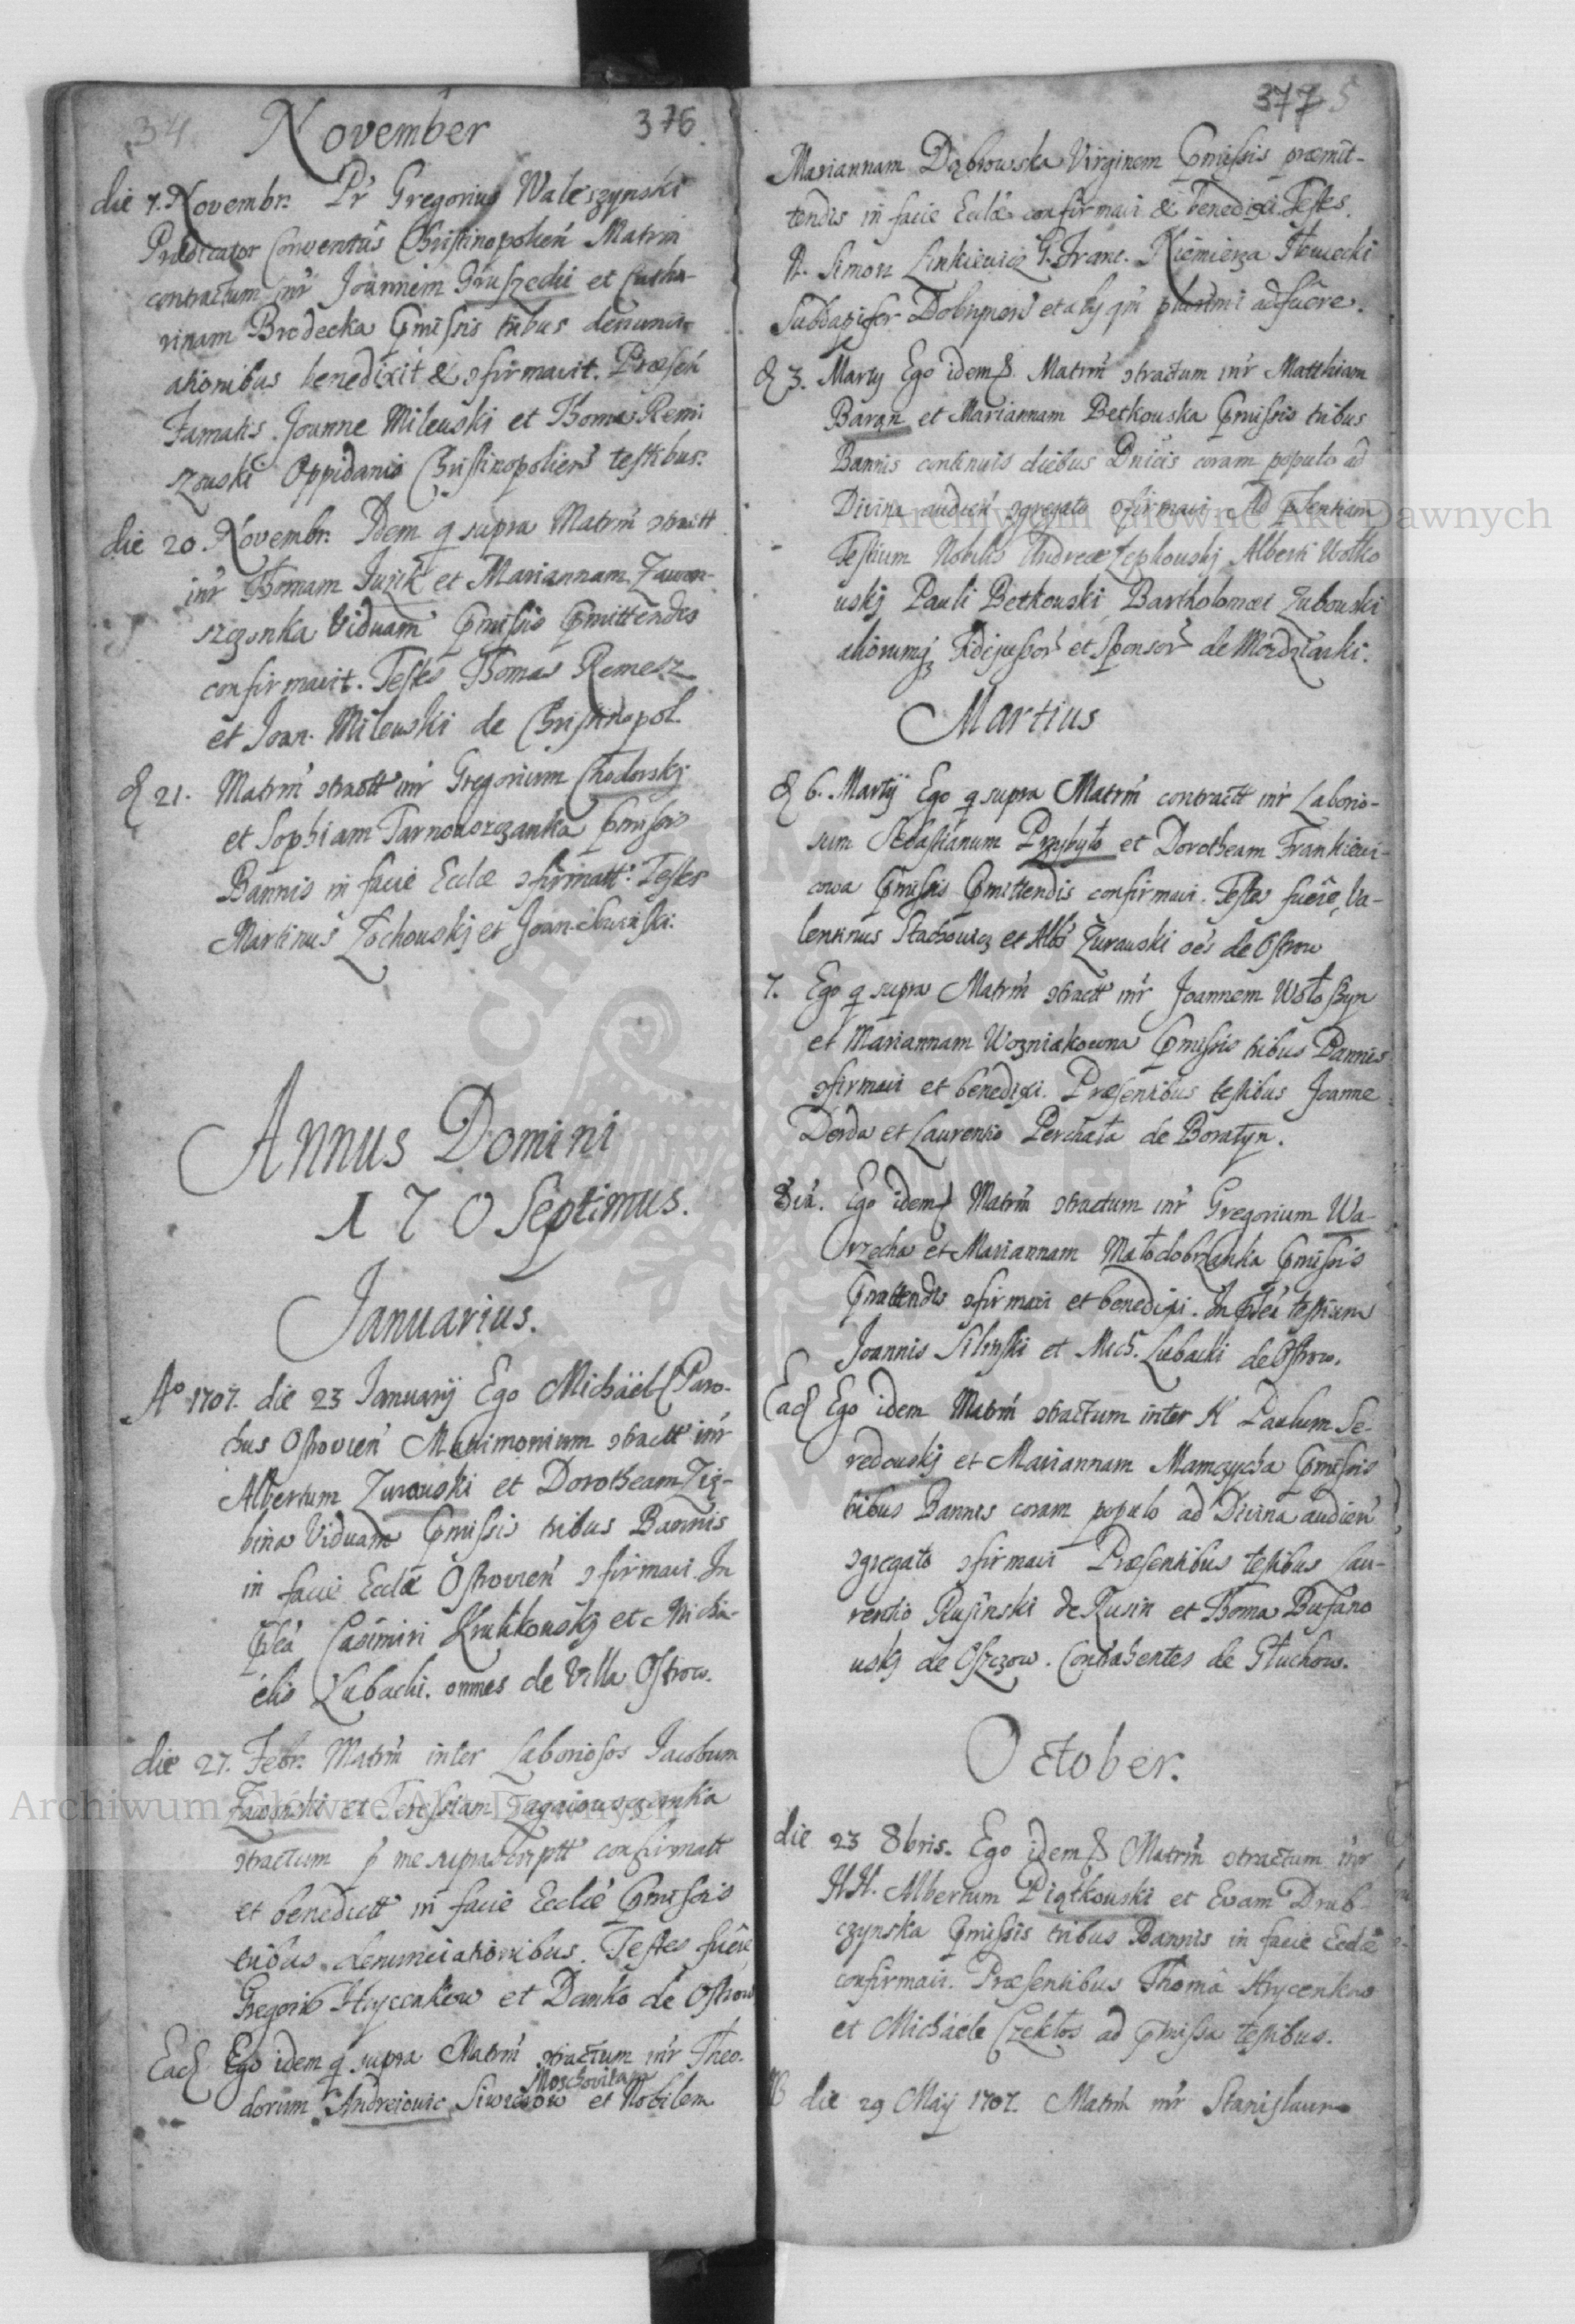 34
November 376
die 7. Novembr. Pr Gregorius Waleszynski
Prædicator Conventûs Christinopolień Matrm
contractum inr Joannem Gruszecki et Catha-
rinam Brodecka Pmissis tribus denunci-
ationibus benedixit & ɔfirmavit. Præseń
Famatis Joanne Milewski et Thoma Remi-
szowski Oppidanis Christinopolień testibus.
die 20. Novembr. Idem q supra Matrm ɔtractt
inr Thomam Juzik et Mariannam Zawon-
szczonka Viduam Pmissis Pmittendis
confirmavit. Testes Thomas Remesz
et Joan. Milewski de Christinopol.
d 21. Matrm ɔtractt inr Gregorium Chodorskj
et Sophiam Tarnowszczanka Pmissis
Bannis in facie Eccłæ ɔfirmatt. Testes
Martinus Zochouskj et Joan.
Annus Domini
170 Septimus.
Januarius.
Ao 1707. die 23 Januarÿ Ego Michäel Paro-
chus Ostrovień Matrimonium ɔtractt inr
Albertum Zurawski et Dorotheam Zię-
bina Viduam Pmissis tribus Bannis
in facie Eccłæ Ostrovień ɔfirmavi. In
Pseā Casimiri Krulikouskj et Micha-
élis Lubacki. omnes de Villa Ostrow.
die 27. Febr. Matrm inter Laboriosos Jacobum
Zawonski et Teressiam Zagaiowszczonka
ɔtractum p me suprascriptt confirmatt
et benedictt in facie Eccłæ Pmissis
tribus denunciationibus. Testes fuêre
Gregori9 Hrycenkow et Danko de Ostrow
Ead Ego idem q supra Matrm ɔtractum inr Theo-
Moschovitam
dorum Andreiowic Siwcsow et Nobilem
377 5
Mariannam Dąbrowska Virginem Pmissis præmit-
tendis in facie Eccłæ confirmavi & benedixi. Testes.
N. Simon Linkiewicz G. Franc. Niemierza
Subdapifer Dobrynen et alÿ qui plurimi adfuêre.
d 3. Martÿ Ego idem Matrm ɔtractum inr Matthiam
Baran et Mariannam Betkouska Pmissis tribus
Bannis continuis diebus Dnicis coram populo ad
Divina audień ɔgregato ɔfirmavi. Ad Psentiam
Testium Nobilis Andreæ Zepkouskj Alberti Wołko
uskj Pauli Betkouski Bartholomæi Zubouski
aliorumq Fidejussor et Sponsor de
Martius
d 6. Martÿ Ego q supra Matrm contractt inr Laborio-
sum Sebastianum Przybyło et Dorotheam Frankiewi-
cowa Pmissis Pmittendis confirmavi. Testes fuêre, Va-
lentinus Stachowicz et Albt Żurawski oēs de Ostrow
7. Ego q supra Matrm ɔtractt inr Joannem Wołoszyn
et Mariannam Wozniakowna Pmissis tribus Bannis
ɔfirmavi et benedixi. Præsentibus testibus Joanne
Derda et Laurentio Perchała de Boratyn.
8va. Ego idem Matrm ɔtractum inr Gregorium Wa-
rzecha et Mariannam Małodobrzanka Pmissis
Pmittendis ɔfirmavi et benedixi. In Pseā testium
Joannis Silinski et Mich. Lubacki de Ostrow.
Ead Ego idem Matrm ɔtractum inter N Paulum Se-
redouskj et Mariannam Mamczycha Pmissis
tribus Bannis coram populo ad Divina audień
ɔgregato ɔfirmavi Præsentibus testibus Lau-
rentio Rusinski de Rusin et Thoma Bufano
uskj de Oszczow. Contrahentes de Głuchow.
October.
die 23 8bris. Ego idem Matrm ɔtractum inr
NN. Albertum Piątkouski et Evam Drub-
czynska Pmissis tribus Bannis in facie Eccłæ
confirmavi. Præsentibus Thomâ Hrycenkow
et Michâele Czekłos ad Pmissa testibus.
NB die 29 Maÿ 1707. Matrm inr Stanislaum
Archiwum Główne Akt Dawnych
Archiwum Główne Akt Dawnych